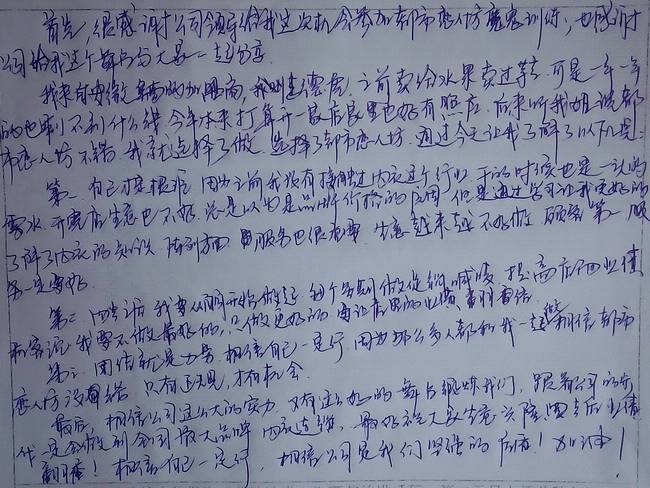 首先,很感谢公司领导给我这次机会参加都市恋人坊魔鬼训练;也感谢
公司给我这个舞台与大家一起分享
我来自安徽的加盟商,我叫 之前卖给水果卖过 可是一年一年
的也剩不到什么钱 今年本来打算开一家店 家里也好有照应 后来听我姐说都
市恋人坊不错 我就选择了做 选择了都市恋人坊。通过今天让我了解了以下几点:
第一 自己 因为之前我没有接触过内衣这个行业 干的时候也是一头的
雾水 开店生意也不好 总是以为是品牌价格的原因 但是通过学习让我更好的
了解了内衣的知识 陈列方面 服务也很重要 生意越来越不好做 顾客第一 服
务是
第二 回去后 我要从 开始做起 每个 做促销 喊麦 提高店面业绩
和客流 我要不做最好的,只做更好的 店里的业绩翻番
第三 团结就是力量 相信自己一定行 因为那么多人都和我一起 相信都市
恋人坊没有错 只有 才有机会
最后,相信公司这么大的实力 又有这么好的舞台锻炼我们,跟着公司的步
伐一定会做到全国最大品牌 内衣连锁,最好祝大家生意兴隆 回去后业绩
翻番! 相信自己一定行,相信公司是我们坚强的后盾! 加油!